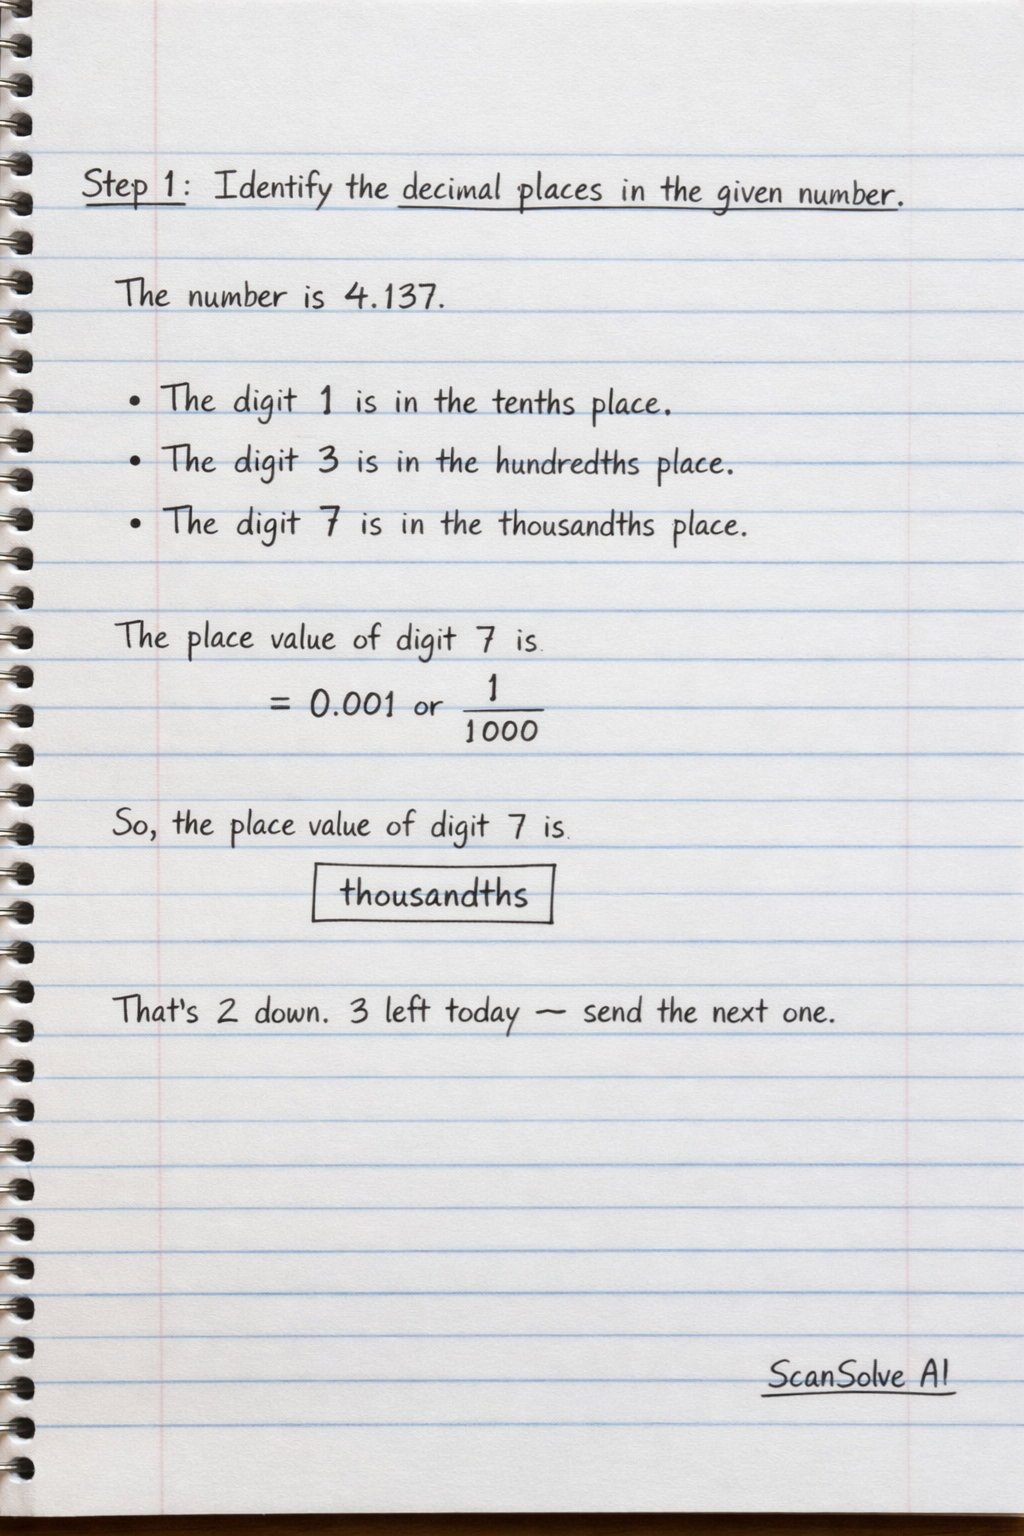 Step 1: Identify the decimal places in the given number.
The number is 4.137.
• The digit 1 is in the tenths place.
• The digit 3 is in the hundredths place.
• The digit 7 is in the thousandths place.
The place value of digit 7 is.
= 0.001 or 1/1000
So, the place value of digit 7 is.
thousandths
That's 2 down. 3 left today — send the next one.
ScanSolve AI